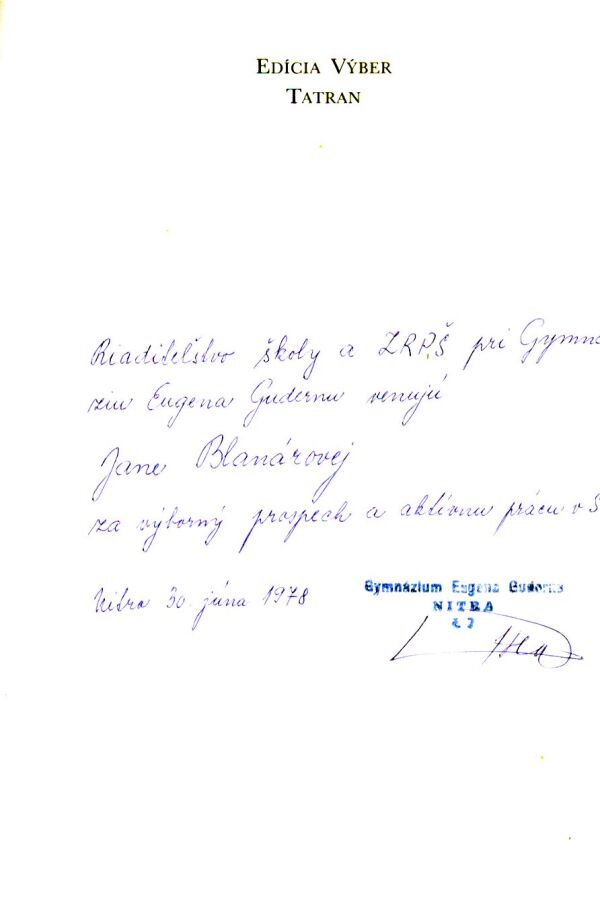 EDÍCIA VÝBER
TATRAN
Riaditeľstvo školy a ZRPŠ pri Gymná
ziu Eugena Gudernu venujú
Jane Blanárovej
za výborný prospech a aktívnu prácu v S
Nitra 30. júna 1978
Gymnázium Eugena Guderna
NITRA